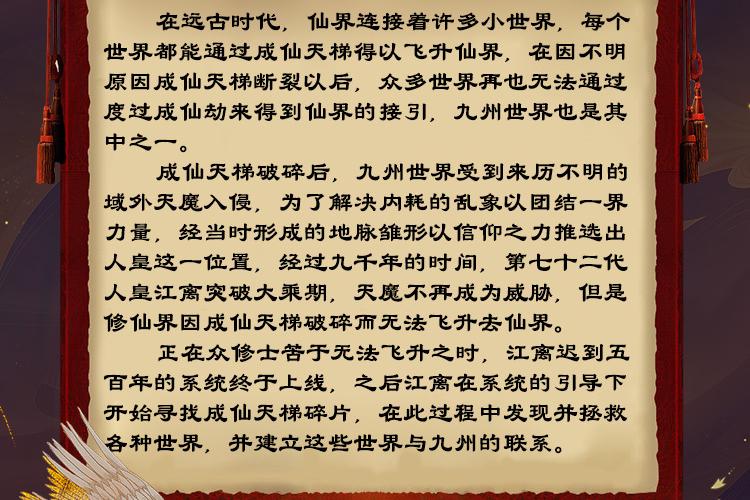 在远古时代，仙界连接着许多小世界，每个
世界都能通过成仙天梯得以飞升仙界，在因不明
原因成仙天梯断裂以后，众多世界再也无法通过
度过成仙劫来得到仙界的接引，九州世界也是其
中之一。
成仙天梯破碎后，九州世界受到来历不明的
域外天魔入侵，为了解决内耗的乱象以团结一界
力量，经当时形成的地脉雏形以信仰之力推选出
人皇这一位置，经过九千年的时间，第七十二代
人皇江离突破大乘期，天魔不再成为威胁，但是
修仙界因成仙天梯破碎而无法飞升去仙界。
正在众修士苦于无法飞升之时，江离迟到五
百年的系统终于上线，之后江离在系统的引导下
开始寻找成仙天梯碎片，在此过程中发现并拯救
各种世界，并建立这些世界与九州的联系。